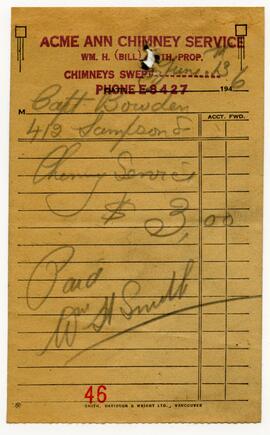 ACME ANN CHIMNEY SERVICE
WM. H. (BILL) TH, PROP.
CHIMNEYS SWEPT
June 13
PHONE E-8427 1946
M Capt Bowden
ACCT. FWD.
419 Sampson St
Chimny Service
$ 3,00
Paid
Wm H Smith
46
SMITH, DAVIDSON & WRIGHT LTD., VANCOUVER